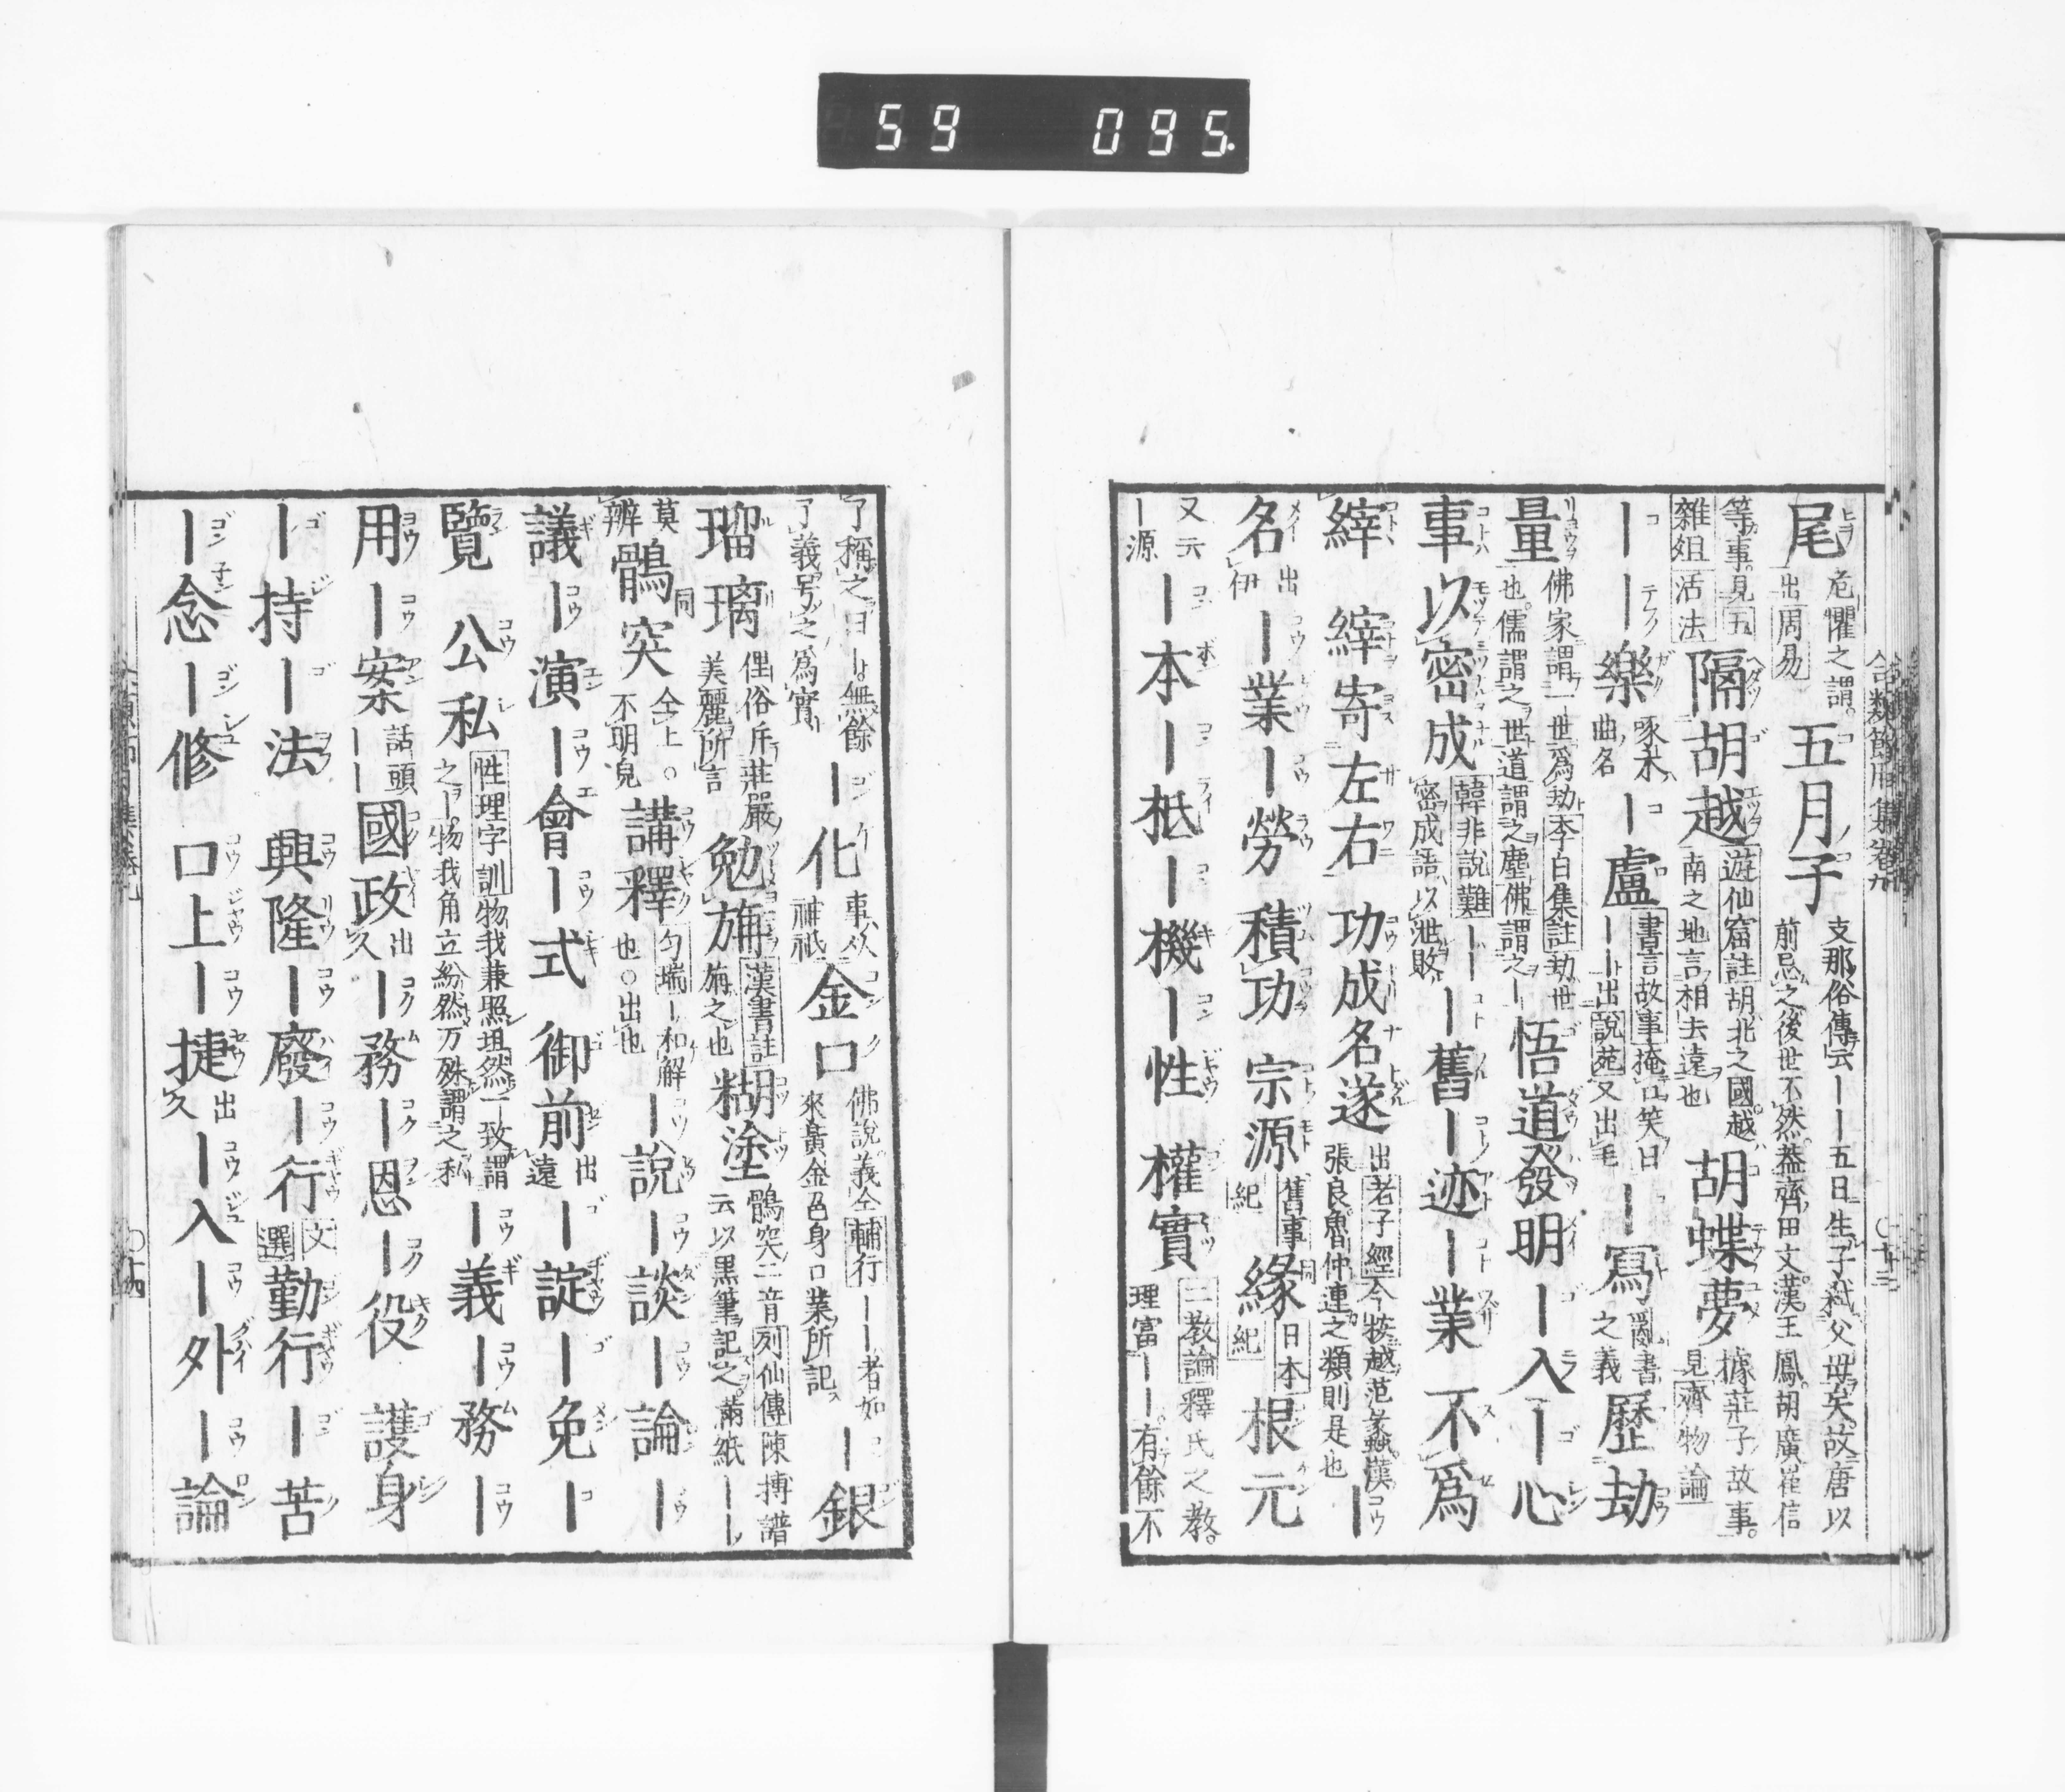 59 095.
合類節用集卷九
〇十三
尾危懼之謂。出周易 五月子支那俗傳云——五日生子弒父母矣。故唐以前忌之後世不然。蓋齊田文。漢王鳳。胡廣。崔信
等事。見五雜俎活法 隔胡越遊仙窟註胡北之國。越南之地言相去遠也 胡蝶夢據莊子故事。見齊物論
——樂啄木曲名 —盧書言故事掩口笑曰——出說苑又出毛 —寫亂書之義 歷劫
量佛家謂一世爲劫李白集註劫世也。儒謂之世道謂之塵佛謂之— 悟道發明—入—心
事以密成韓非說難——密成語以泄敗 —舊—迹—業 不爲
縡 縡寄左右 功成名遂出老子經今按越范蠡。漢張良。魯仲連之類則是也 —
名出伊—業—勞 積功 宗源舊事紀 緣同日本紀 根元
又云—源 —本—柢—機—性 權實二教論釋氏之教。理富——有餘不
了稱之曰—無餘了義号之爲實 —化事久祇 金口佛說義仝輔行——者如來黃金色身口業所記 —銀
瑠璃俚俗斥莊嚴美麗所言 勉旃漢書註旃之也 糊塗鶻突二音列仙傳陳摶譜云以黒筆記之。滿紙——
莫辨 鶻突同仝上。○不明皃 講釋勻瑞—和解也○出也 —說—談—論—
議—演—會—式 御前出遠—諚—免—
覽 公私性理字訓物我兼照坦然一致謂之—。物我角立紛然万殊謂之私 —義—務—
用—案話頭—— 國政出久—務—恩—役 護身
—持—法— 興隆—廢—行文選 勤行—苦
—念—修 口上—捷出久—入—外—論
〇十四